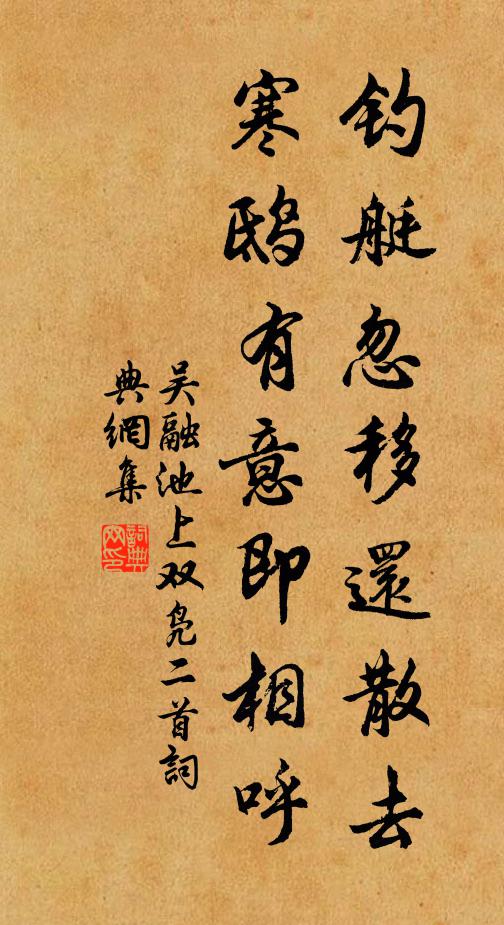 钓艇忽移還散去
寒鸱有意即相呼
吴融池上双凫二首詞
典網集
詞典
网印